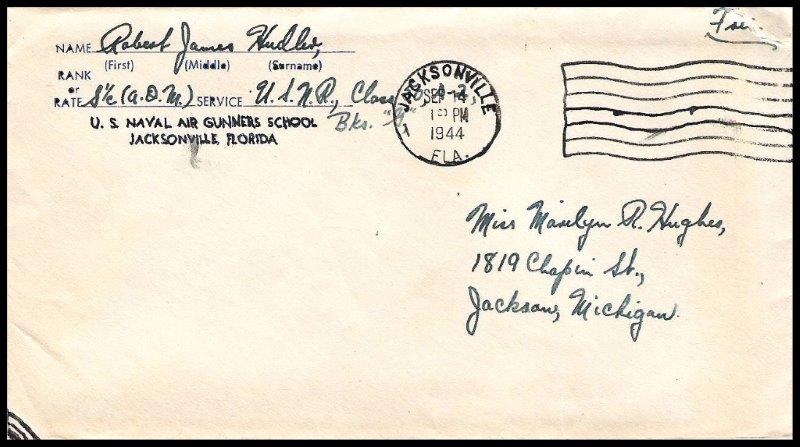 Free
NAME Robert James Hudler,
(First) (Middle) (Surname)
RANK
or
RATE S1/c (A.O.M.) SERVICE U.S.N.R., Class
Bks.
U. S. NAVAL AIR GUNNERS SCHOOL
JACKSONVILLE, FLORIDA
JACKSONVILLE
SEP 14
1 PM
1944
FLA.
Miss Marilyn R. Hughes,
1819 Chapin St.,
Jackson, Michigan.